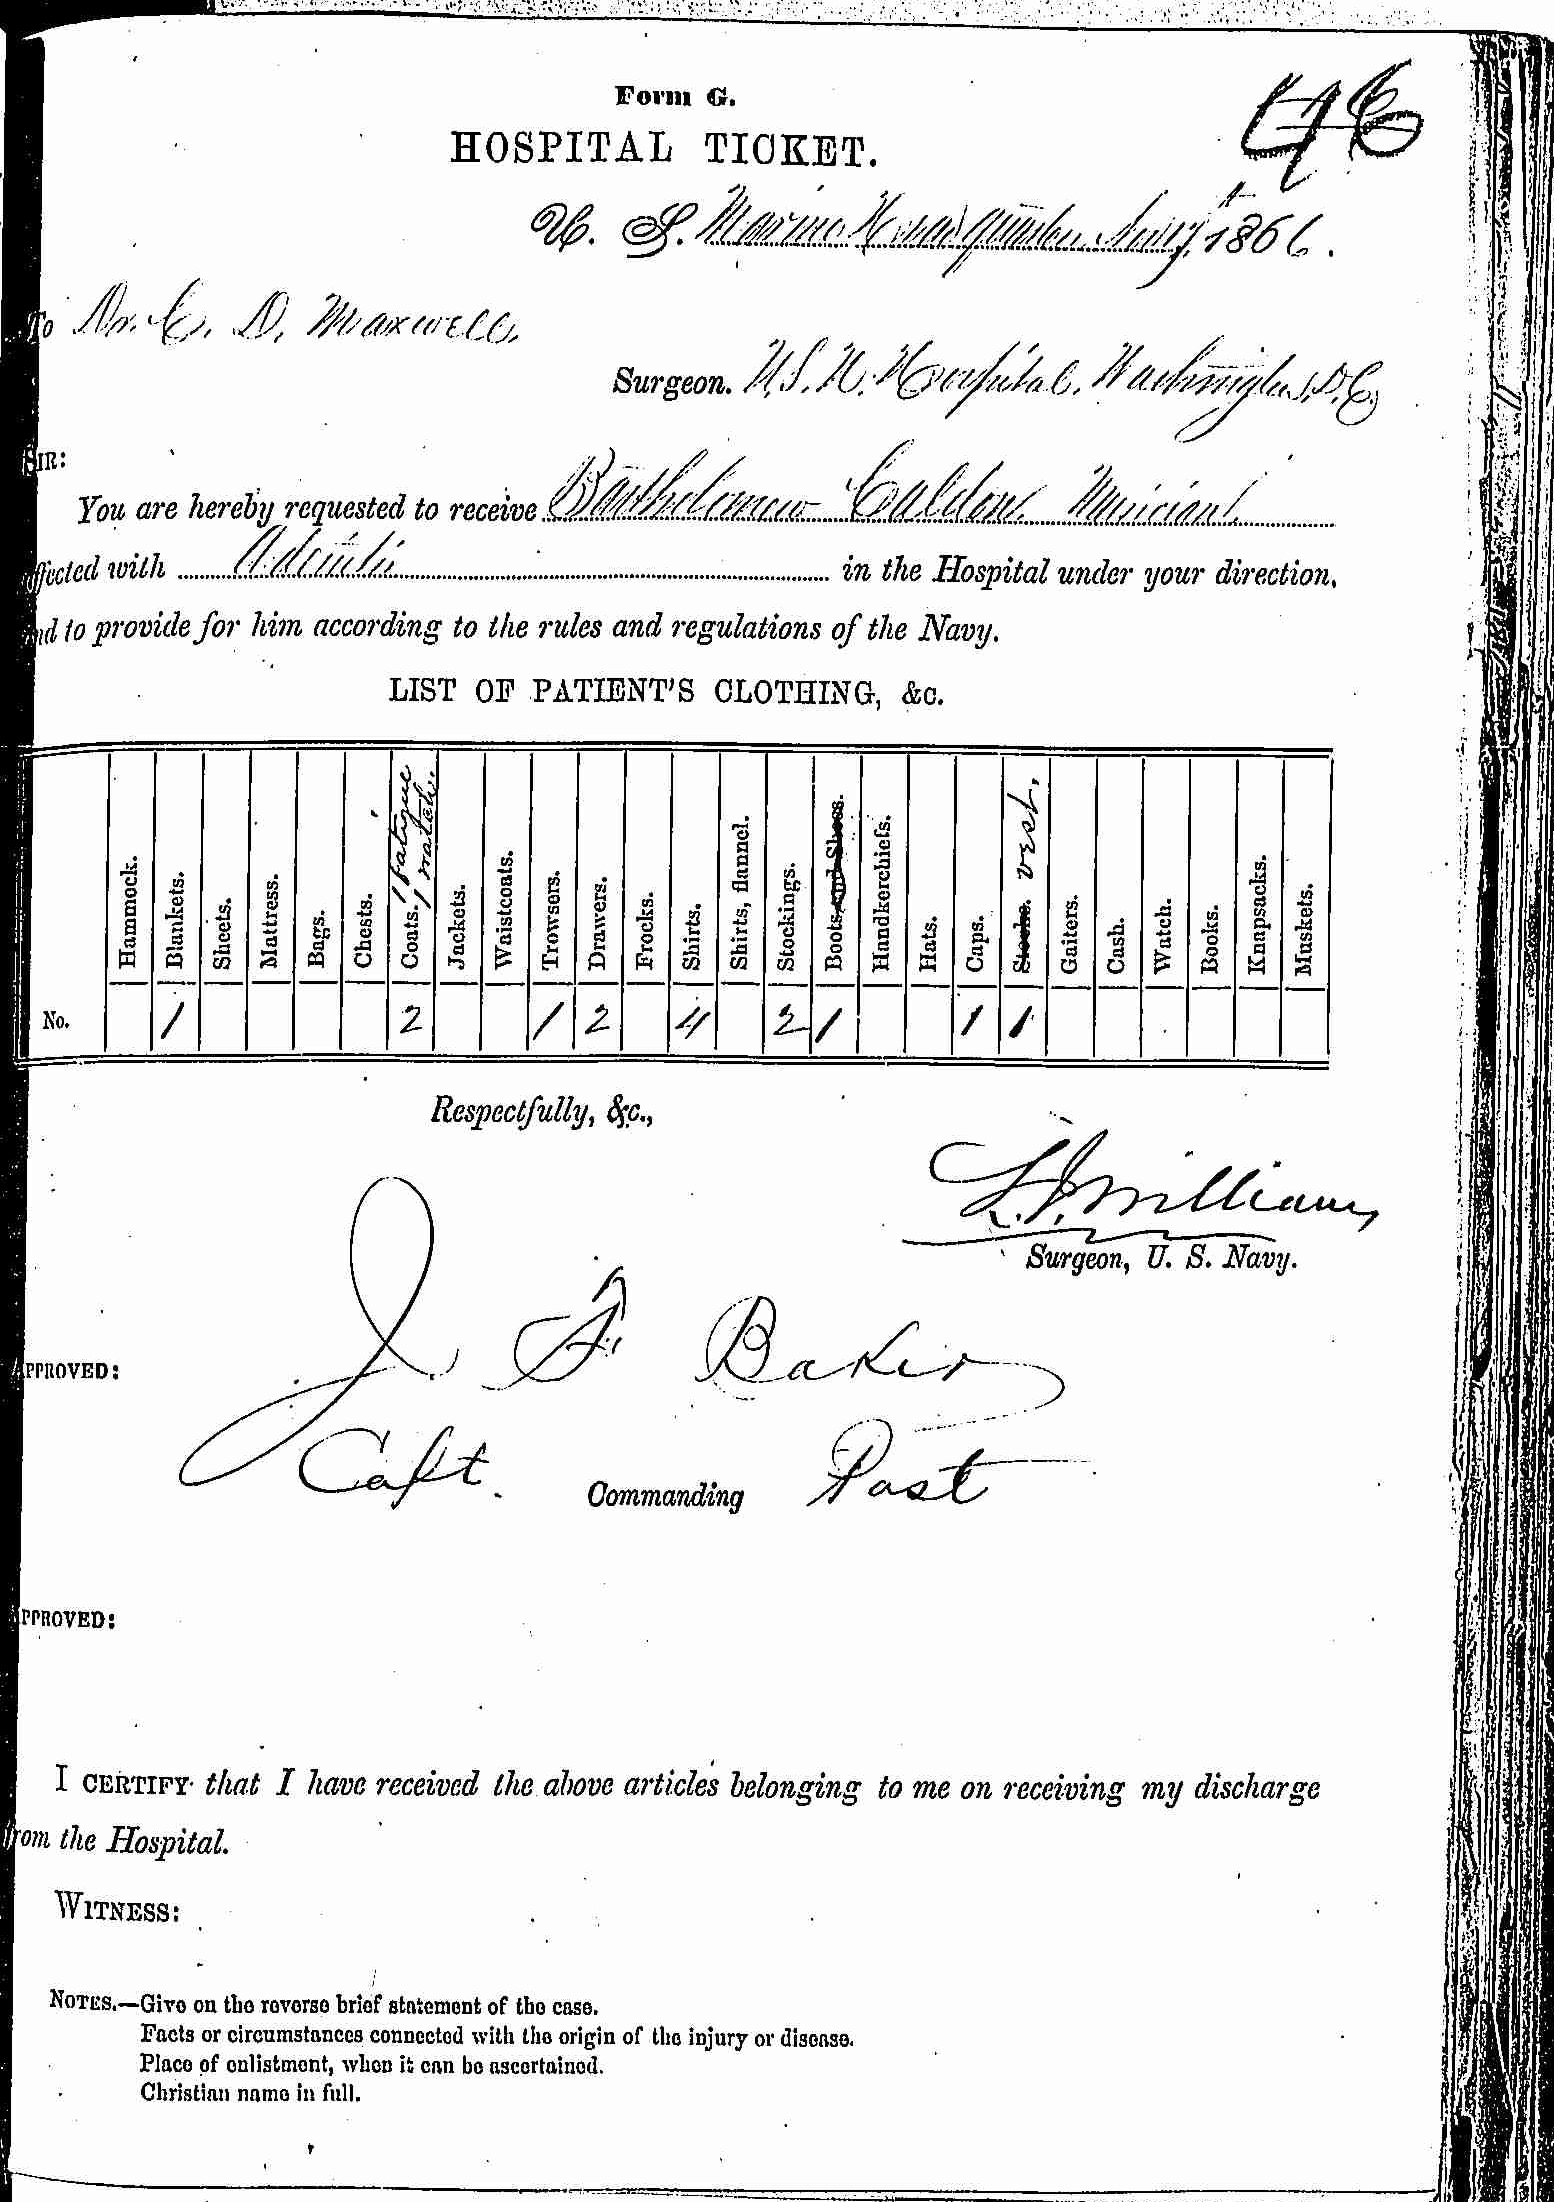 Form G.
46
HOSPITAL TICKET.
U. S. Marine Head Quarters 1866.
To Dr. C. D. Maxwell.
Surgeon. U.S.N. Hospital. Washington, D.C.
SIR:
You are hereby requested to receive Bartholomew Caldon. Musician.
affected with in the Hospital under your direction,
and to provide for him according to the rules and regulations of the Navy.
LIST OF PATIENT'S CLOTHING, &c.
Hammock. Blankets. Sheets. Mattress. Bags. Chests. Coats. 1 fatigue 1 Jackets. Waistcoats. Trowsers. Drawers. Frocks. Shirts. Shirts, flannel. Stockings. Boots and Shoes. Handkerchiefs. Hats. Caps. Stocks. vest. Gaiters. Cash. Watch. Books. Knapsacks. Muskets.
No. 1 2 1 2 4 2 1 1 1
Respectfully, &c.,
Williams
Surgeon, U. S. Navy.
APPROVED: J. F. Baker
Capt. Commanding Post
APPROVED:
I CERTIFY that I have received the above articles belonging to me on receiving my discharge
from the Hospital.
WITNESS:
NOTES.—Give on the reverse brief statement of the case.
Facts or circumstances connected with the origin of the injury or disease.
Place of enlistment, when it can be ascertained.
Christian name in full.